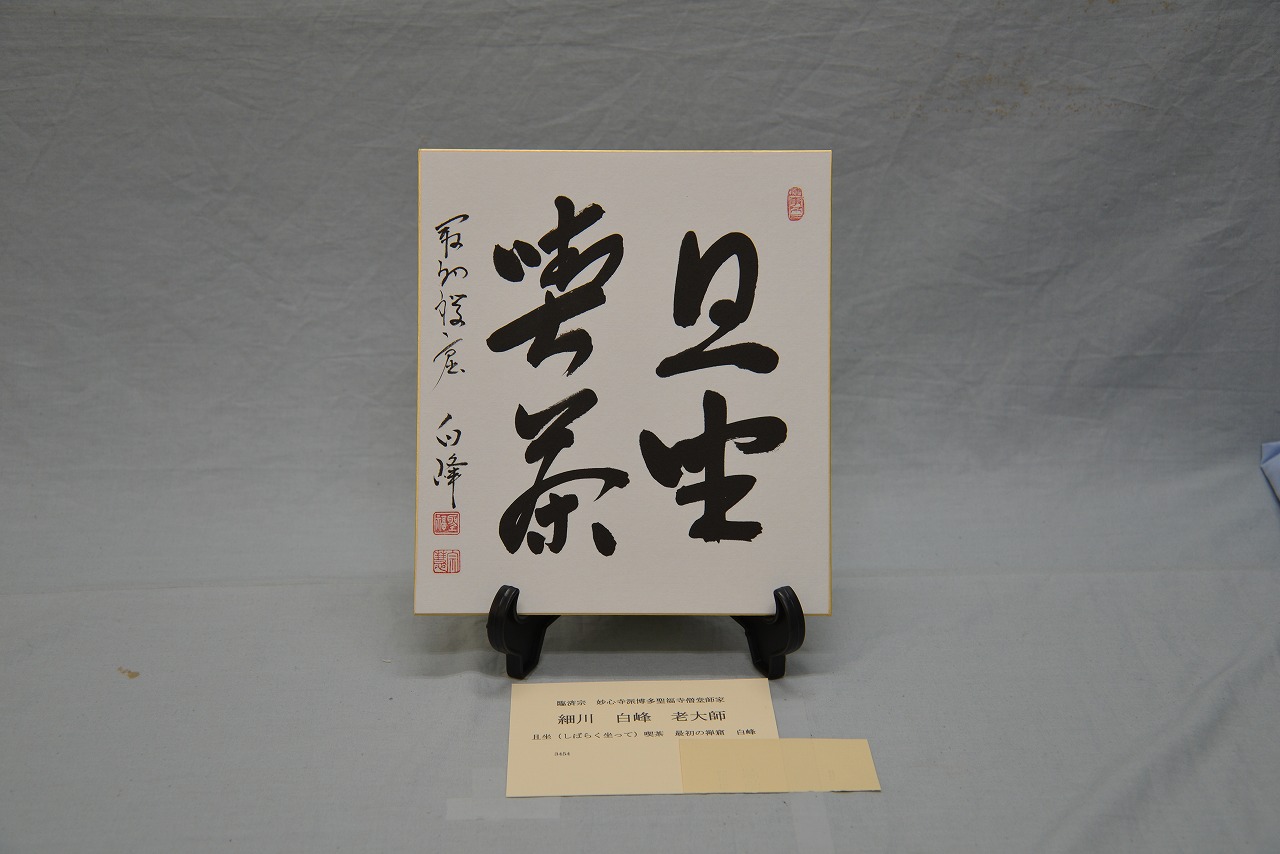 且坐
喫茶
最初禅窟 白峰
臨済宗 妙心寺派博多聖福寺僧堂師家
細川 白峰 老大師
且坐（しばらく坐って）喫茶 最初の禅窟 白峰
0454